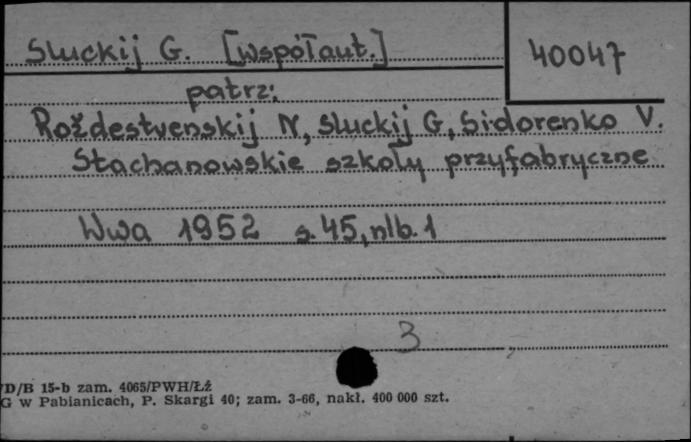 Słuckij G. [współaut.]
40047
patrz:
Rożdestvenskij N, Słuckij G, Sidorenko V.
Stachanowskie szkoły przyfabryczne
Wwa 1952 s. 45, nlb. 1
3
D/B 15-b zam. 4065/PWH/Łź
G w Pabianicach, P. Skargi 40; zam. 3-66, nakł. 400 000 szt.